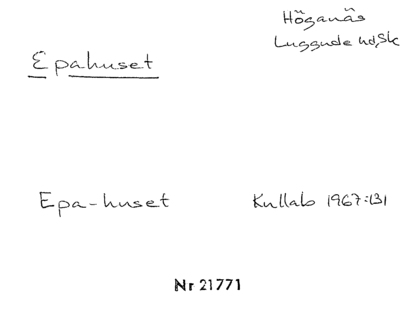 Höganäs
Luggude hd, Sk
Epahuset
Epa-huset
Kullab 1967:131
Nr 21771